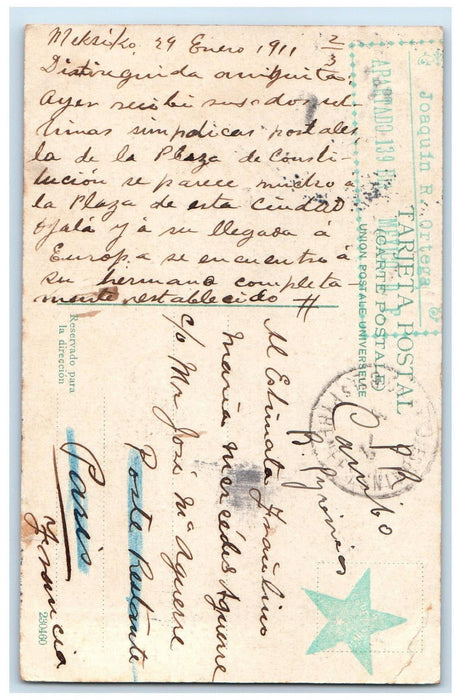 Meksiko, 29 Enero 1911
2/3
Distinguida amiguita:
Ayer recibí sus dos ul-
timas simpaticas postales
la de la Plaza de Consti-
tución se parece mucho a
la Plaza de esta ciudad.
Ojalá y á su llegada á
Europa se encuentre á
su hermano completa-
mente restablecido #
Joaquín R. Ortega
APARTADO 139
TARJETA POSTAL
(CARTE POSTALE)
UNION POSTALE UNIVERSELLE
Reservado para
la dirección
Al Estimata Fraulino
Maria Mercedes Aguerre
c/o Mr José Ma Aguerre
Poste Restante
Paris
Francia
B. Pyrénées
230460